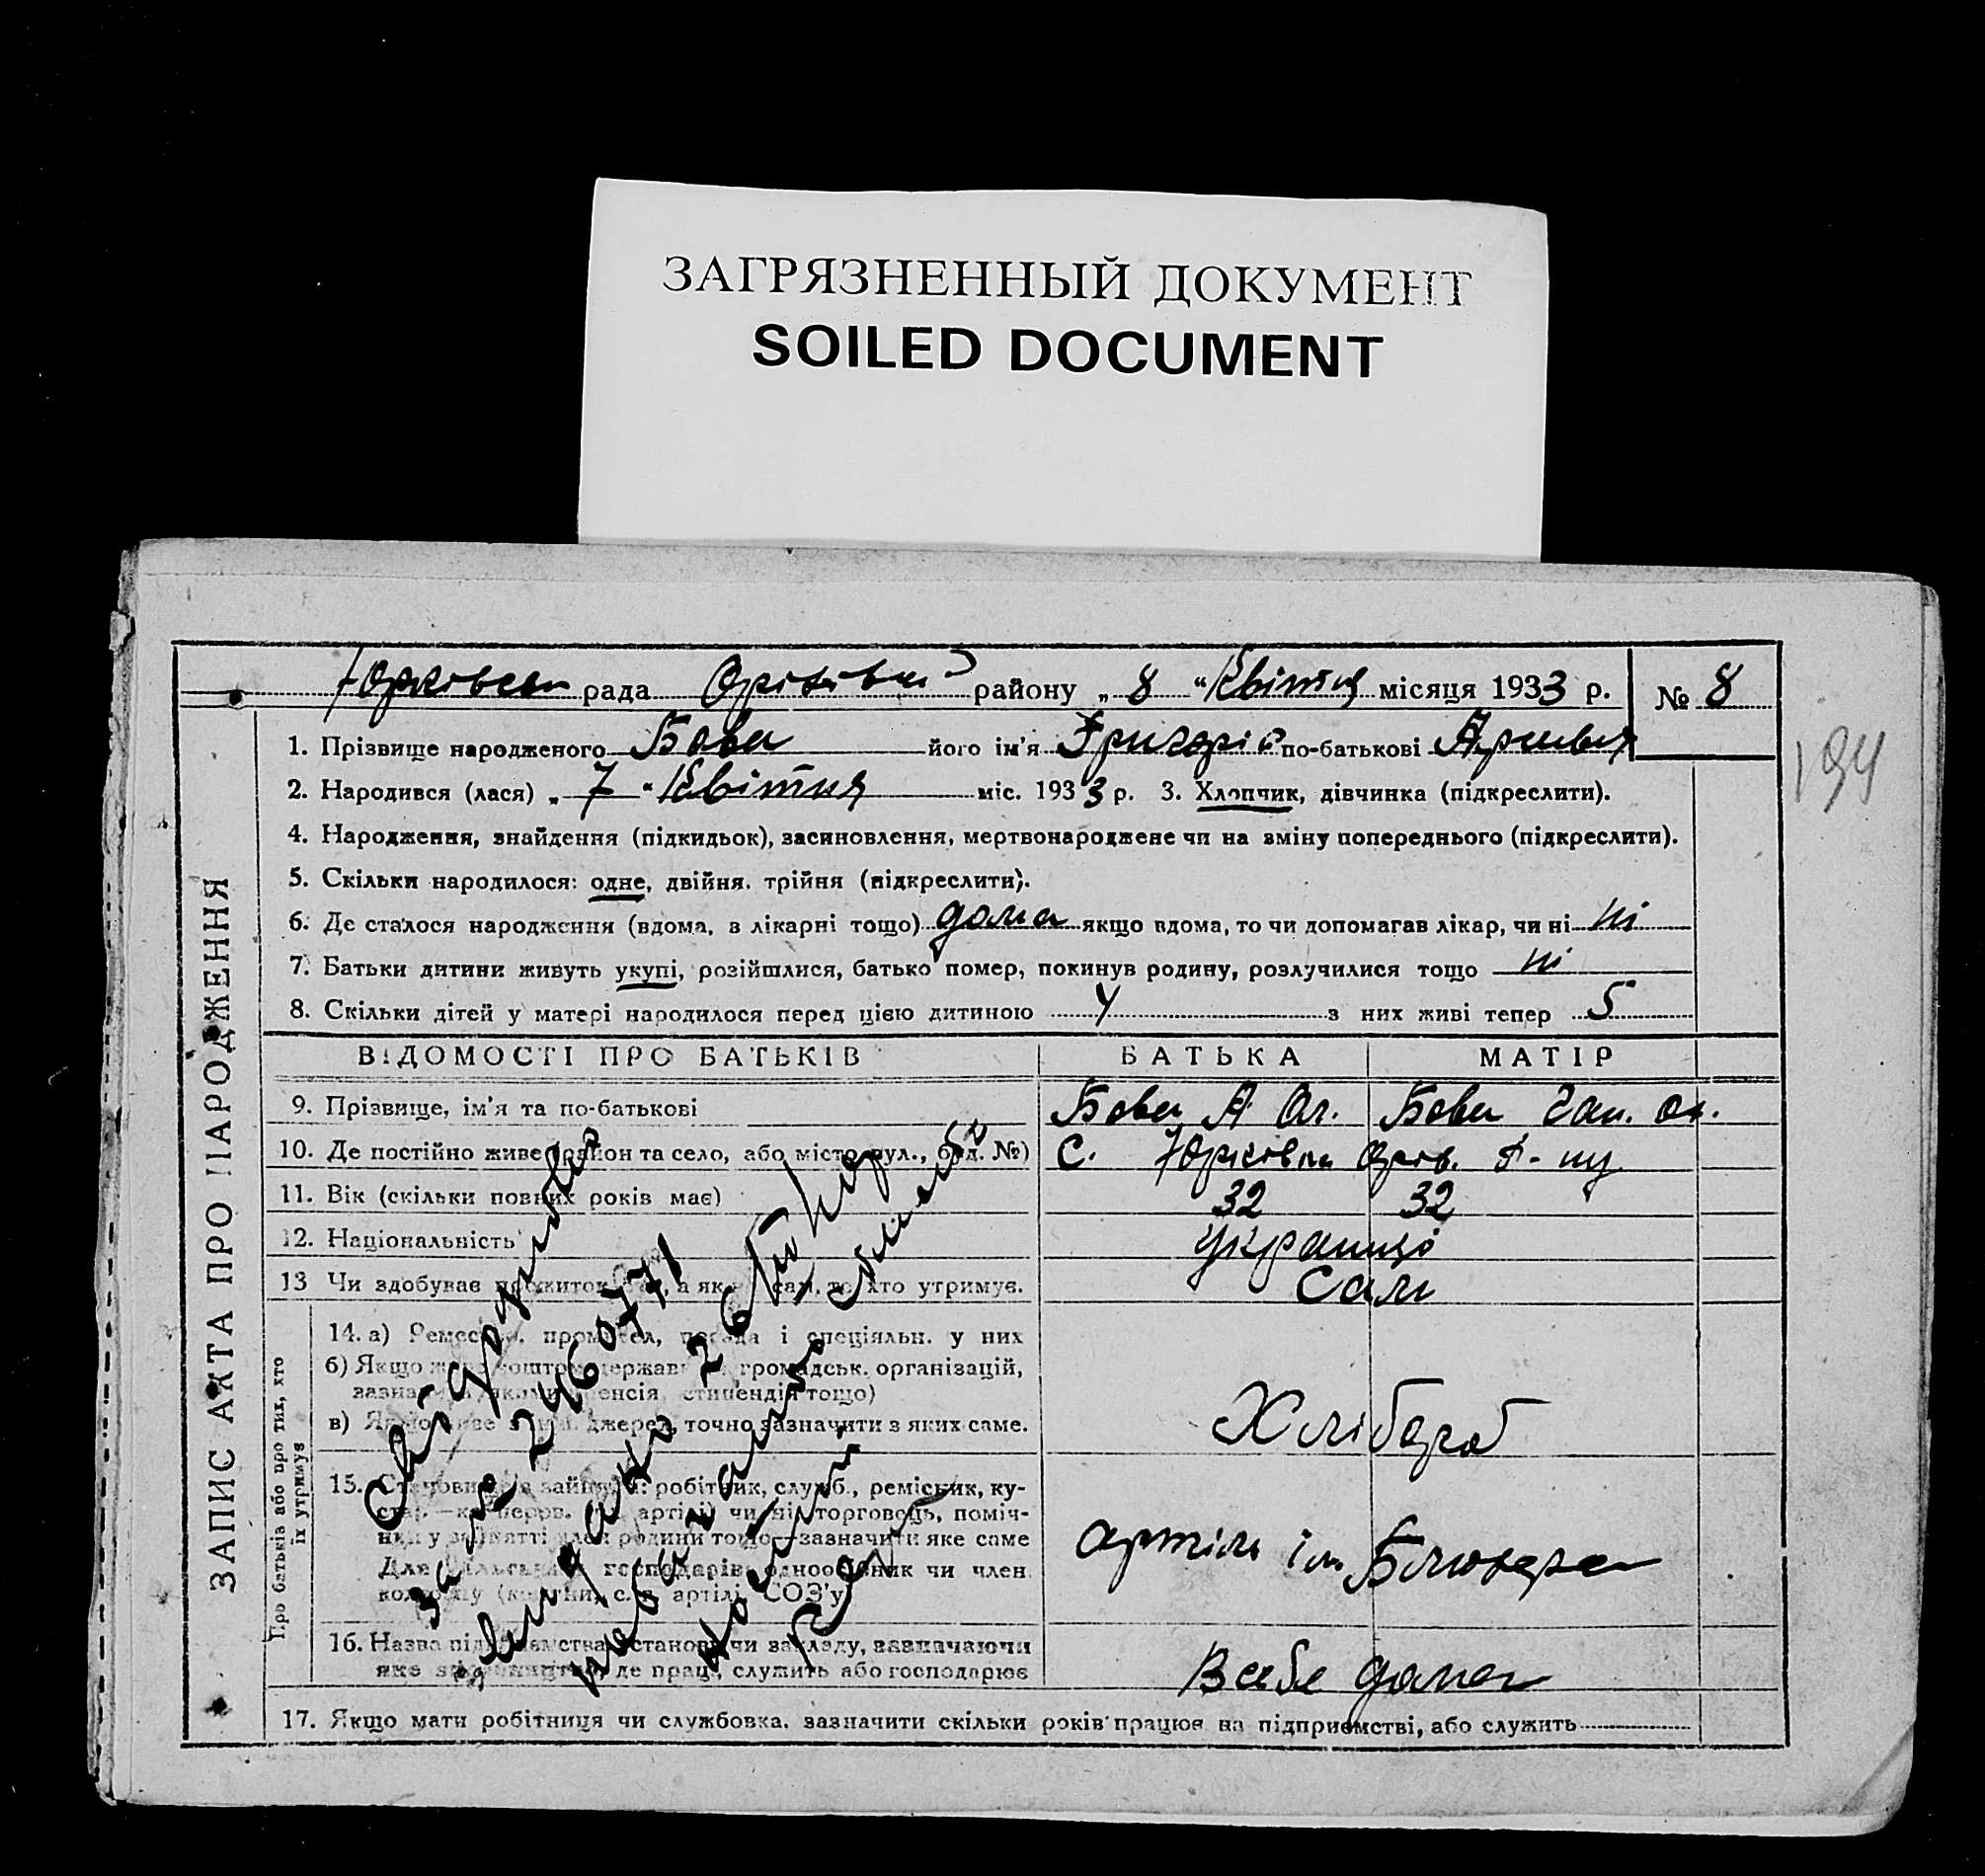 ЗАГРЯЗНЕННЫЙ ДОКУМЕНТ
SOILED DOCUMENT
рада району „ 8 “ Квітня місяця 1933 р. № 8
1. Прізвище народженого Бова його ім'я Григорій по-батькові
194
2. Народився (лася) „ 7 “ Квітня міс. 1933 р. 3. Хлопчик, дівчинка (підкреслити).
4. Народження, знайдення (підкидьок), засиновлення, мертвонароджене чи на зміну попереднього (підкреслити).
5. Скільки народилося: одне, двійня. трійня (підкреслити).
6. Де сталося народження (вдома, в лікарні тощо) дома якщо вдома, то чи допомагав лікар, чи ні ні
7. Батьки дитини живуть укупі, розійшлися, батько помер, покинув родину, розлучилися тощо ні
8. Скільки дітей у матері народилося перед цією дитиною 4 з них живі тепер 5
ЗАПИС АКТА ПРО НАРОДЖЕННЯ
ВІДОМОСТІ ПРО БАТЬКІВ БАТЬКА МАТІР
9. Прізвище, ім'я та по-батькові Бова А. Ол. Бова
10. Де постійно живе (район та село, або місто, вул., буд. №) с. Юрківка Оріх. р-ну
11. Вік (скільки повних років має) 32 32
12. Національність українці
13 Чи здобуває прожиток сам, а як не сам, то хто утримує. Сам
Про батьків або про тих, хто їх утримує
14. а) Ремесло, промисел, посада і спеціяльн. у них
б) Якщо живе коштом державн. громадськ. організацій,
зазначити пенсія, стипендія тощо)
в) Якщо живе з джерел, точно зазначити з яких саме.
Хлібороб
15. Становище в занятті: робітник, служб., ремісник, ку-
стар. артілі) чи ні, торговець, поміч-
ник у занятті член родини тощо—зазначити яке саме
Для сільських господарів: одноосібник чи член
колгоспу артілі, СОЗ'у)
артіль ім Блюхера
16. Назва підприємства, установи чи закладу, зазначаючи
яке де працює, служить або господарює
В себе дома
17. Якщо мати робітниця чи службовка, зазначити скільки років працює на підприємстві, або служить
за № 246077